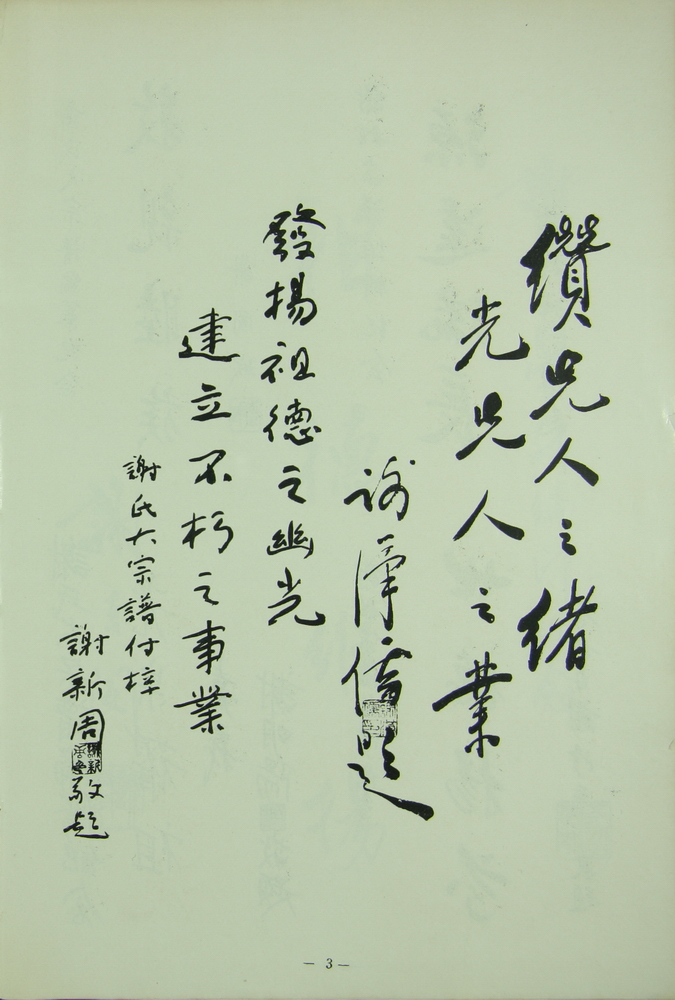 纘先人之緒
光先人之業
謝漢儒題
發揚祖德之幽光
建立不朽之事業
謝氏大宗譜付梓
謝新周敬題
— 3 —